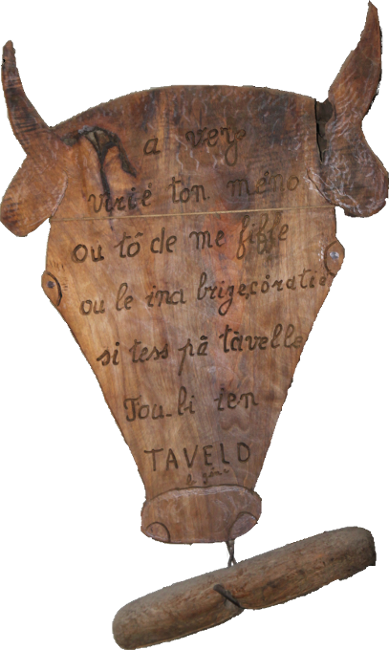 a vey
virié ton méno
ou tô de me fifie
ou le ina brizecóratie
si tess pâ tavelle
Tou-li ten
TAVELD